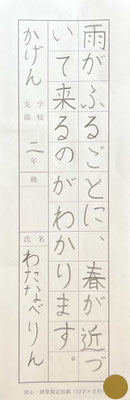 雨がふるごとに、春が近づ
いて来るのがわかります。
かげん 学校 支部 二年 級 氏名 わたなべりん